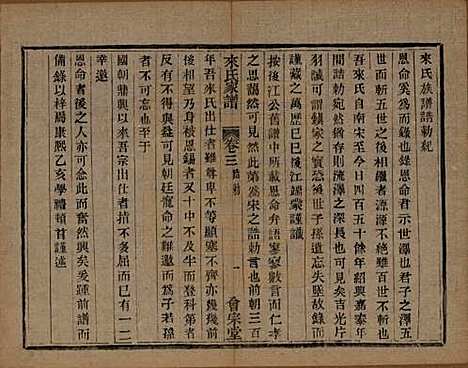 來氏族譜誥勅紀
恩命奚爲而錄也錄恩命君示世澤也君子之澤五
世而斬五世之後斬者源源不絶雖百世不斬也
吾來氏自南宋至今日四百餘年紹興嘉泰年
誥勅宛然俱存可見源流之深長也眞如吉光片
羽誠可謂鎭家之寶恐後世子孫遺忘失墜故錄而
謹藏之萬歷巳巳後江端蒙謹識
按後江公舊譜中所載恩命弁語寥寥數言而仁孝
之思藹然可見然第爲宋之誥勅言也前朝三百
來氏家譜
卷三
誥勅
一
會宗堂
年吾來氏出仕者雖尊卑不同顯塞不齊亦幾幾前
後相望矣而恩命之存者反少至而登科第者
反有不得與益可見朝廷寵命之難邀若子若孫
不可忘也至于
國朝鼎興以來吾宗出仕者亦已有一二
幸邀
恩命者後之人亦可念此而奮然興矣爰踵前譜而
備錄以梓焉康熙乙亥學禮頓首謹述